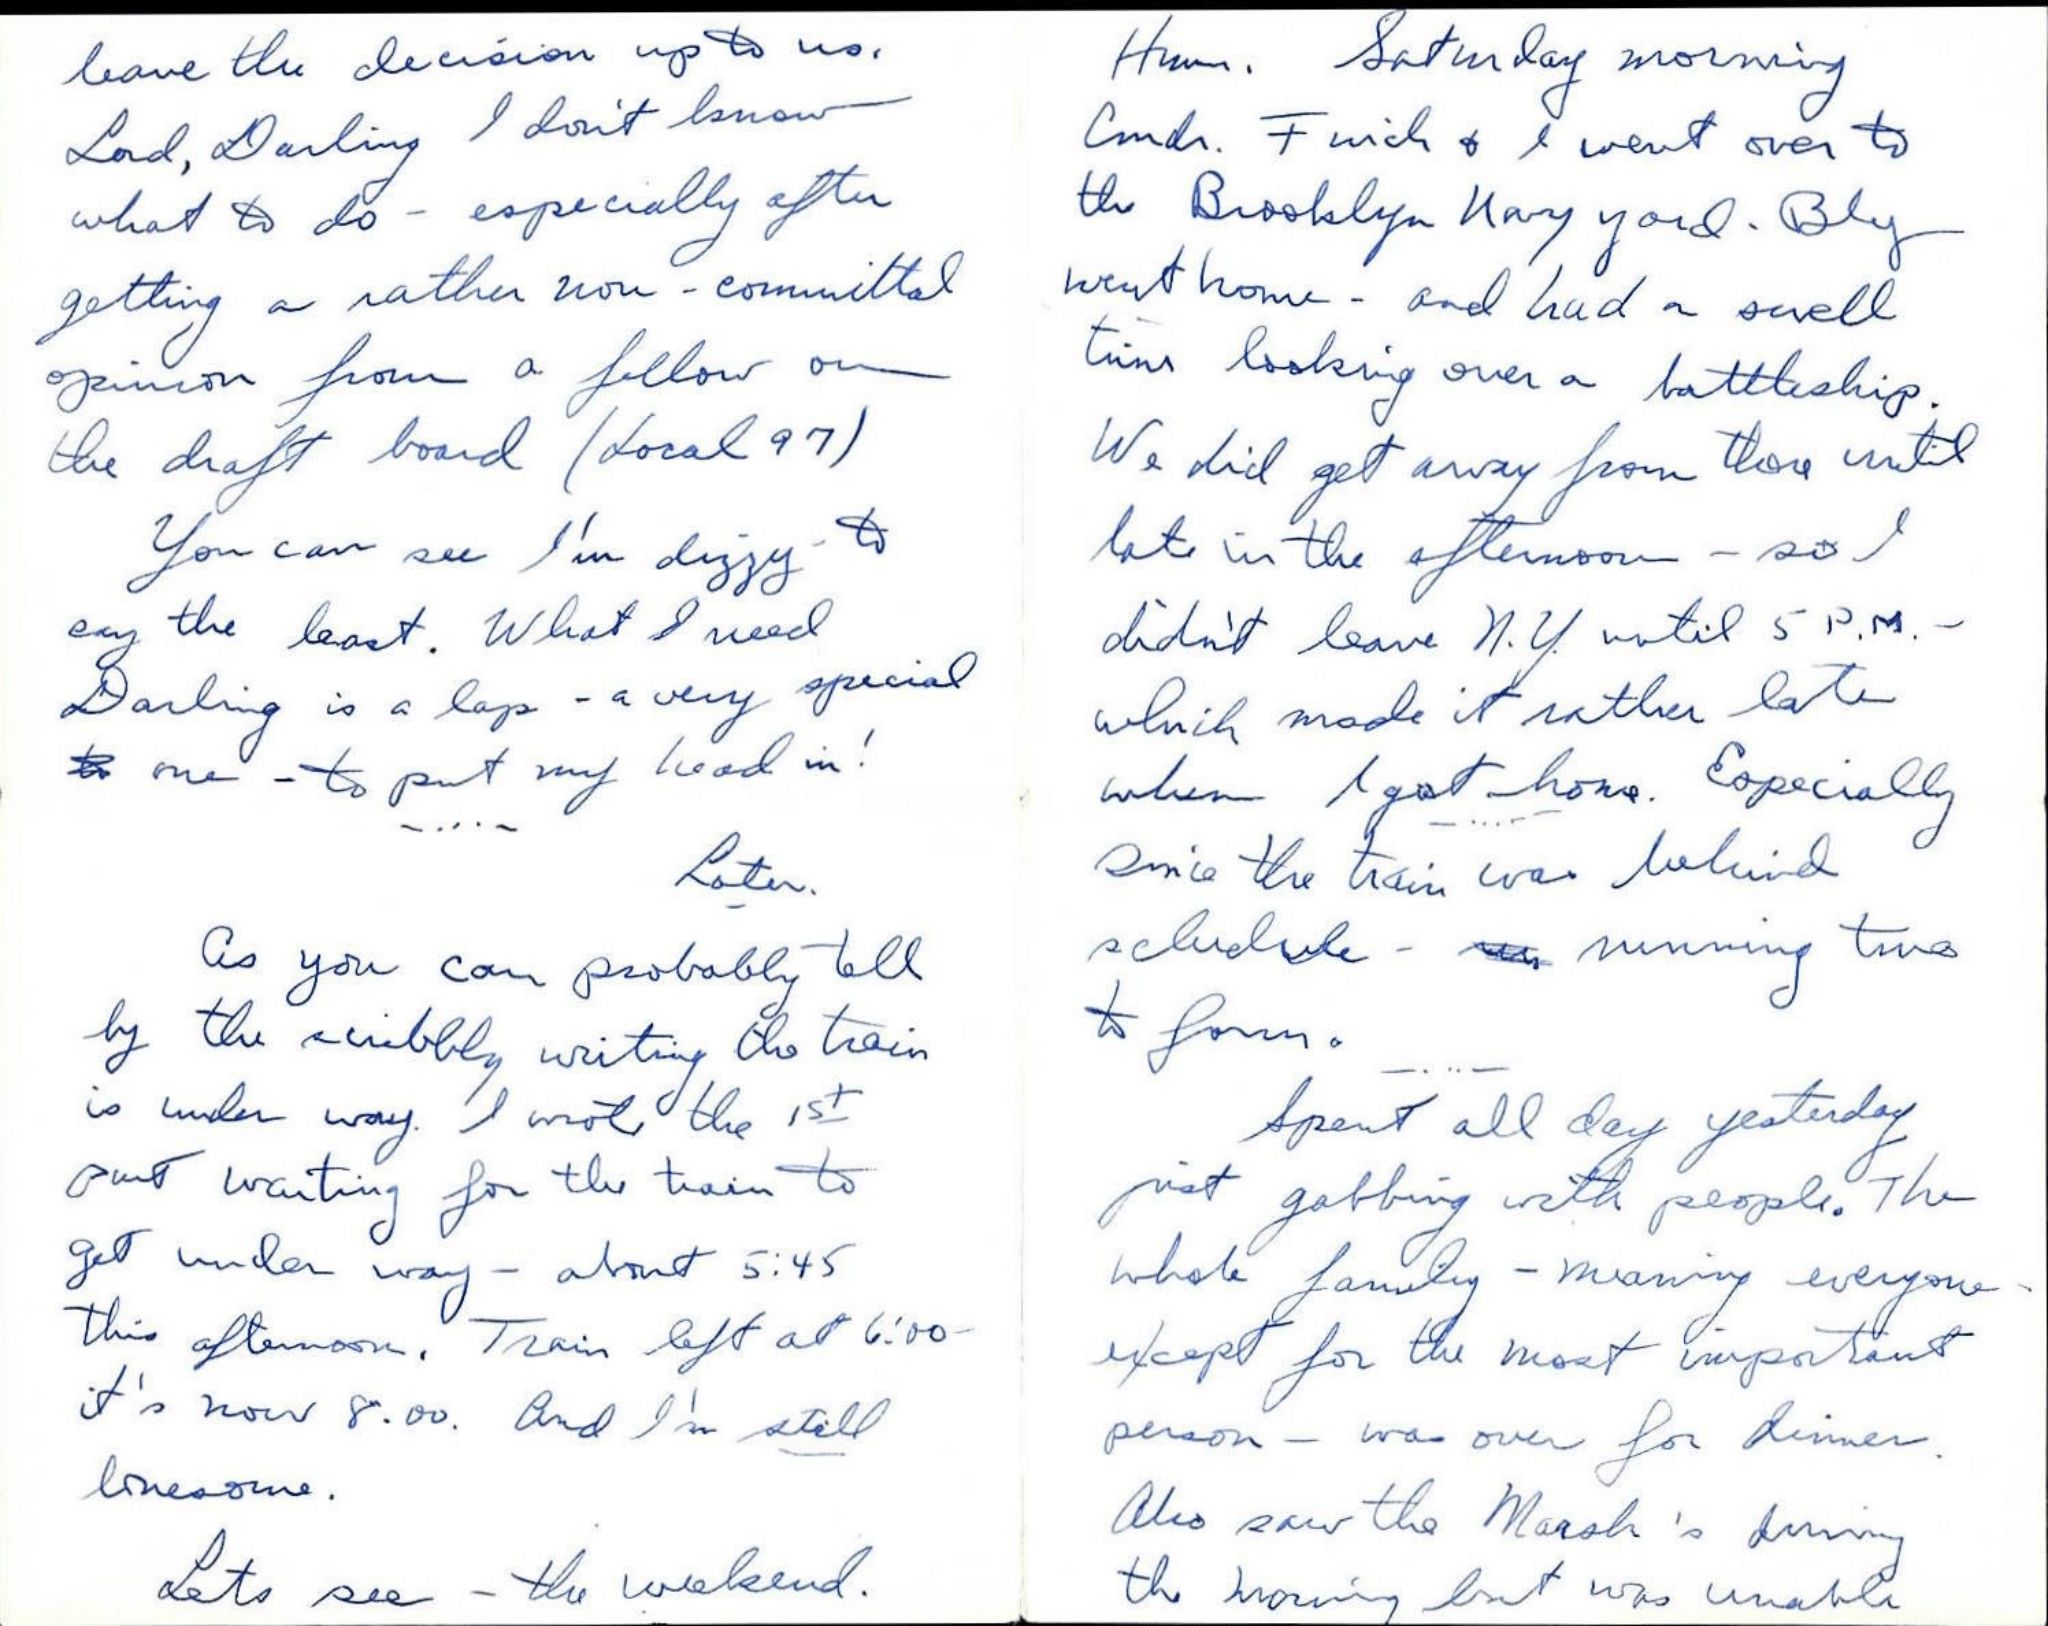 leave the decision up to us.
Lord, Darling I don't know
what to do - especially after
getting a rather non-committal
opinion from a fellow on
the draft board (Local 97)
You can see I'm dizzy - to
say the least. What I need
Darling is a lap - a very special
one - to put my head in!
Later.
As you can probably tell
by the scribbly writing the train
is under way. I wrote the 1st
part waiting for the train to
get under way - about 5:45
this afternoon. Train left at 6:00 -
it's now 8.00. And I'm still
lonesome.
Lets see - the weekend.
Hmm. Saturday morning
Cmdr. & I went over to
the Brooklyn Navy yard. Bly
went home - and had a swell
time looking over a battleship.
We did get away from there until
late in the afternoon - so I
didn't leave N.Y. until 5 P.M. -
which made it rather late
when I got home. Especially
since the train was behind
schedule - running true
to form.
Spent all day yesterday
just gabbing with people. The
whole family - meaning everyone -
except for the most important
person - was over for dinner.
Also saw the Marsh's during
the morning but was unable